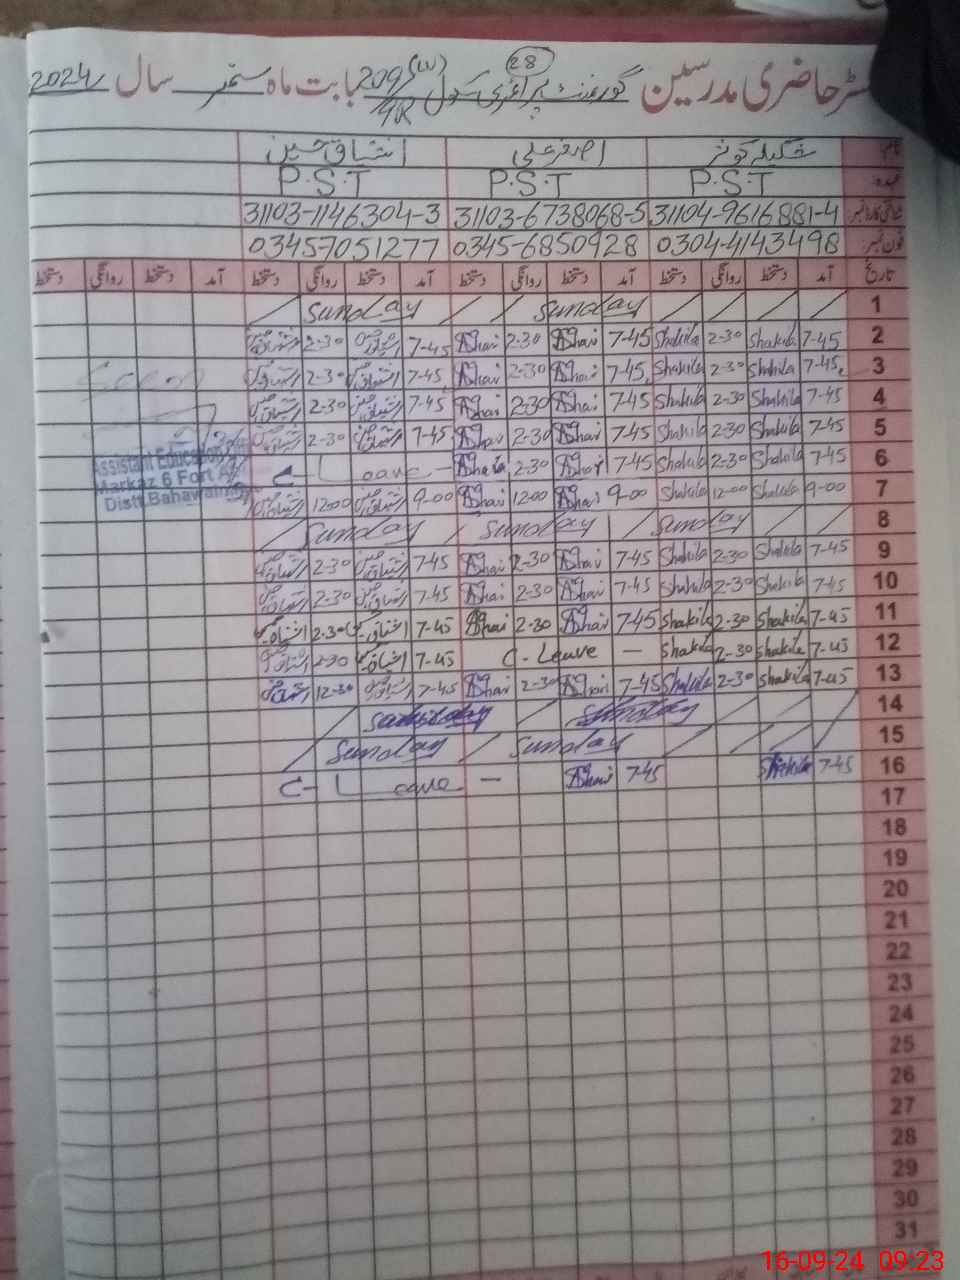 28
رجسٹر حاضری مدرسین گورنمنٹ پرائمری سکول 209/(W) بابت ماہ ستمبر سال 2024ء
4R
نام شکیلہ کوثر اصغر علی اشتیاق حسین
عہدہ P.S.T P.S.T P.S.T
شناختی کارڈ نمبر 31104-9616881-4 31103-6738068-5 31103-1146304-3
فون نمبر 0304-4143498 0345-6850928 03457051277
تاریخ آمد دستخط روانگی دستخط آمد دستخط روانگی دستخط آمد دستخط روانگی دستخط آمد دستخط روانگی دستخط
1 Sunday Sunday
2 7-45 Shakila 2-30 Shakila 7-45 2-30 7-45 2-30
3 7-45 Shakila 2-30 Shakila 7-45 2-30 7-45 2-30
4 7-45 Shakila 2-30 Shakila 7-45 2-30 7-45 2-30
5 7-45 Shakila 2-30 Shakila 7-45 2-30 7-45 2-30
6 7-45 Shakila 2-30 Shakila 7-45 2-30 C-Leave
7 9-00 Shakila 12-00 Shakila 9-00 1200 9-00 1200
8 Sunday Sunday Sunday
9 7-45 Shakila 2-30 Shakila 7-45 2-30 7-45 2-30
10 7-45 Shakila 2-30 Shakila 7-45 2-30 7-45 2-30
11 7-45 Shakila 2-30 Shakila 7-45 2-30 7-45 اشتیاق 2-30 اشتیاق
12 7-45 Shakila 2-30 Shakila C-Leave 7-45 اشتیاق 2-30
13 7-45 Shakila 2-30 Shakila 7-45 2-30 7-45 12-30
14
15 Sunday Sunday
16 7-45 Shakila 7-45 C-Leave
17
18
19
20
21
22
23
24
25
26
27
28
29
30
31
Seen
Assistant Education
Markaz 6 Fort
Distt.Bahawalnagar
16-09-24 09:23